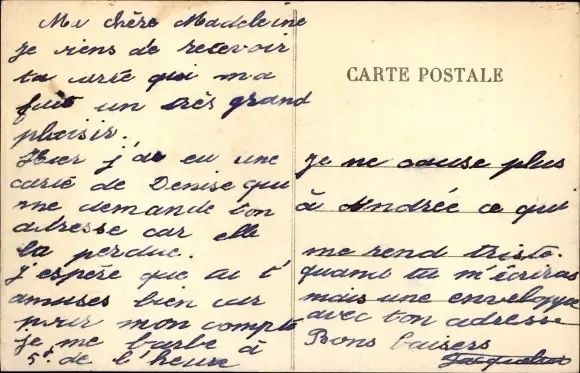 Ma chère Madeleine
je viens de recevoir
ta carte qui m'a
fait un très grand
plaisir.
Hier j'ai eu une
carte de Denise qui
me demande ton
adresse car elle
la perdue.
j'espère que tu t'
amuses bien car
pour mon compte
je me barbe à
5f. de l'heure
CARTE POSTALE
je ne cause plus
à Andrée ce qui
me rend triste.
quand tu m'écriras
mais une enveloppe
avec ton adresse
Bons baisers
Jacqueline